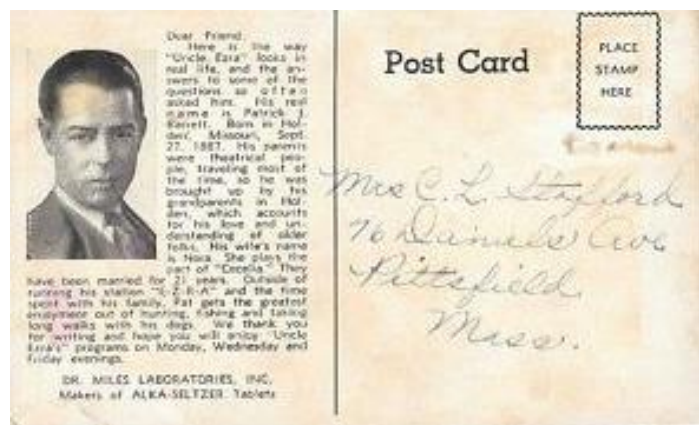 Dear Friend
Here is the way
"Uncle Ezra" looks in
real life, and the an-
swers to some of the
questions so often
asked him. His real
name is Patrick J.
Barrett. Born in Hol-
den, Missouri, Sept.
27, 1887. His parents
were theatrical peo-
ple, traveling most of
the time, so he was
brought up by his
grandparents in Hol-
den, which accounts
for his love and un-
derstanding of older
folks. His wife's name
is Nora. She plays the
part of "Cecelia." They
have been married for 21 years. Outside of
running his station "E-Z-R-A" and the time
spent with his family, Pat gets the greatest
enjoyment out of hunting, fishing and taking
long walks with his dogs. We thank you
for writing and hope you will enjoy "Uncle
Ezra's" programs on Monday, Wednesday and
Friday evenings.
DR. MILES LABORATORIES, INC.
Makers of ALKA-SELTZER Tablets
Post Card
PLACE
STAMP
HERE
Mrs C. L. Stafford
76 Daniels Ave
Pittsfield
Mass.